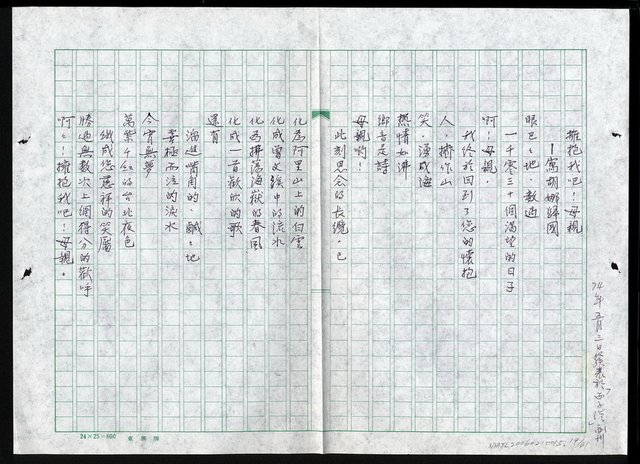 擁抱我吧!母親
—寫胡娜歸國
眼巴巴地,數過
一千零三十個渴望的日子
啊!母親,
我終於回到了您的懷抱
人,擠作山
笑,湧成海
熱情如沸
鄉音是詩
母親喲!
此刻思念的長纜,已
化為阿里山上的白雲
化成曾文溪中的流水
化為拂蕩海嶽的春風
化成一首歡欣的歌
還有
淌進嘴角的,鹹鹹地
喜極而泣的淚水
今宵無夢
萬紫千紅的台北夜色
織成您慈祥的笑靨
勝過無數次上網得分的歡呼
啊!擁抱我吧!母親。
74年五月三日發表於
24×25=600
NMTL20060210015, 19/61